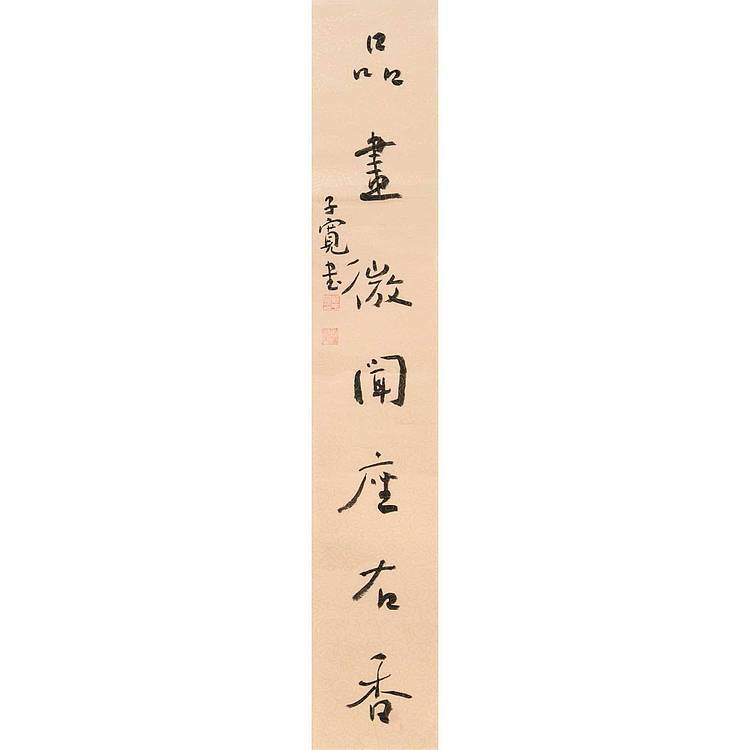 品畫微聞座右香
子寬書